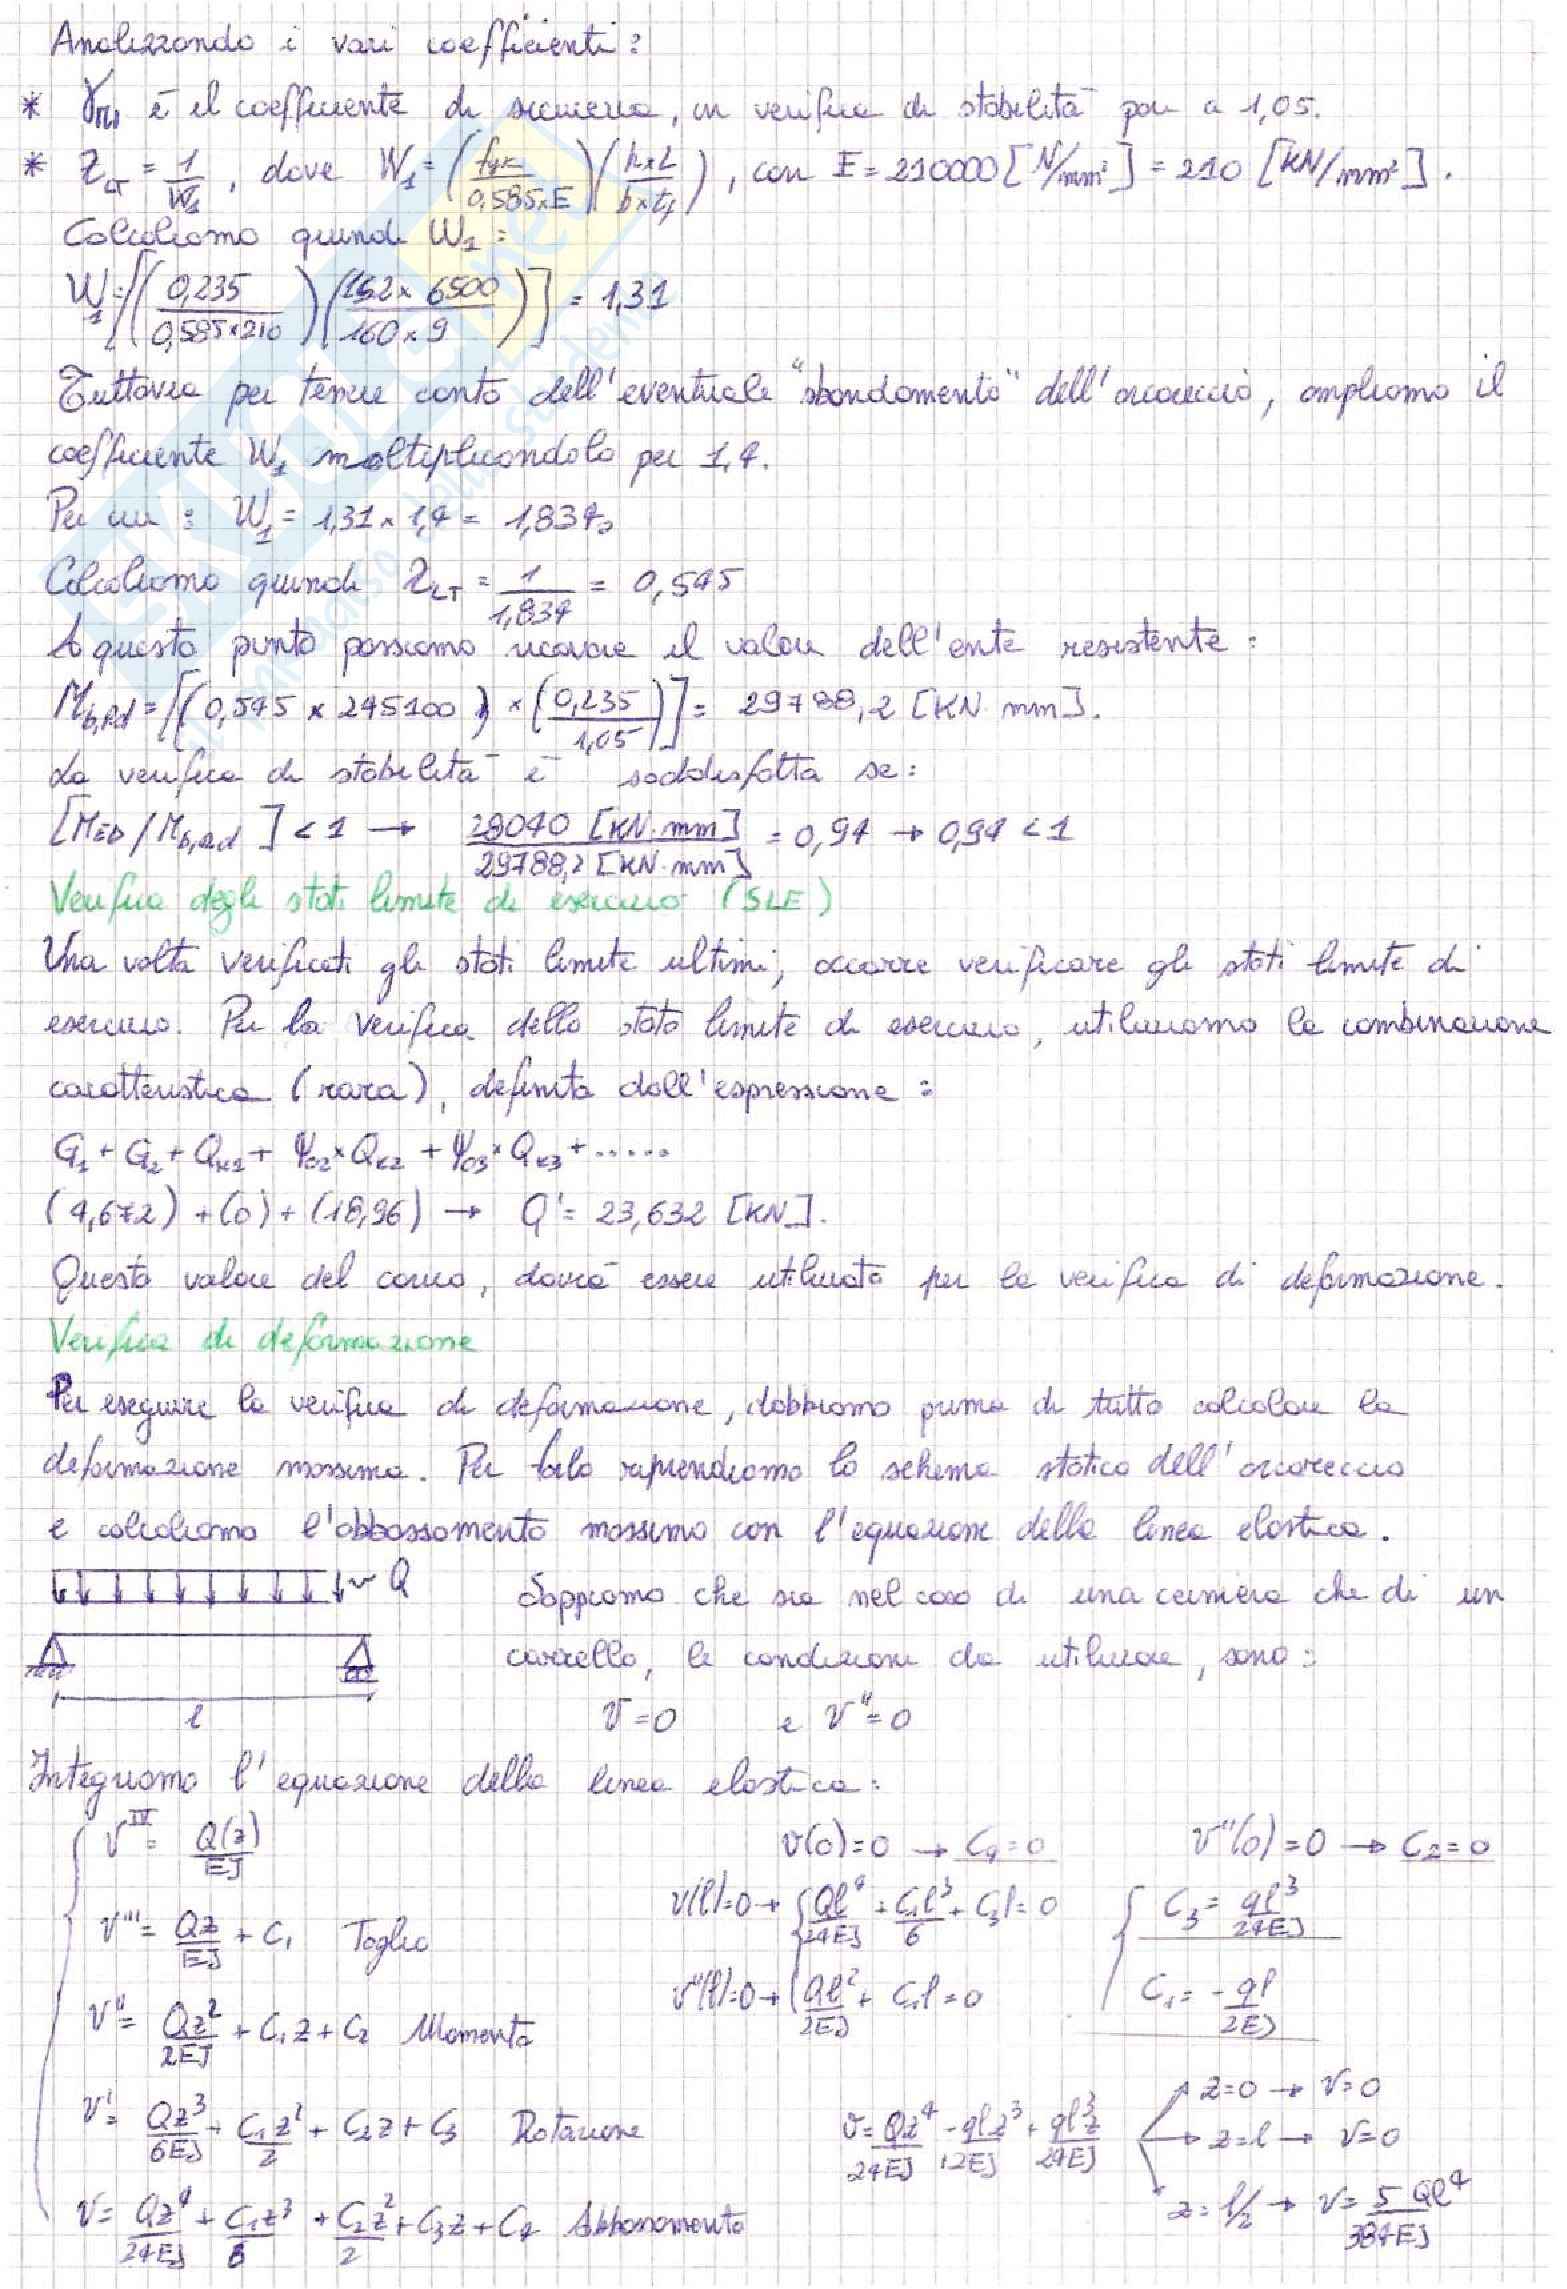 Analizzando i vari coefficienti:
* γM1 è il coefficiente di sicurezza, in verifica di stabilità pari a 1,05.
* χLT = 1/W1, dove W1 = (fyk/0,585×E)(h×L/b×tf), con E = 210000 [N/mm²] = 210 [KN/mm²].
Calcoliamo quindi W1:
W1 = [(0,235/0,585×210)(152×6500/160×9)] = 1,31
Tuttavia per tenere conto dell'eventuale "sbandamento" dell'arcareccio, ampliamo il
coefficiente W1 moltiplicandolo per 1,4.
Per cui: W1 = 1,31 × 1,4 = 1,834.
Calcoliamo quindi χLT = 1/1,834 = 0,545
A questo punto possiamo ricavare il valore dell'ente resistente:
Mb,Rd = [(0,545 × 245100) × (0,235/1,05)] = 29788,2 [KN·mm].
La verifica di stabilità è soddisfatta se:
[MED/Mb,Rd] < 1 → 28040 [KN·mm]/29788,2 [KN·mm] = 0,94 → 0,94 < 1
Verifica degli stati limite di esercizio (SLE)
Una volta verificati gli stati limite ultimi, occorre verificare gli stati limite di
esercizio. Per la verifica dello stato limite di esercizio, utilizziamo la combinazione
caratteristica (rara), definita dall'espressione:
G1 + G2 + QK1 + ψ02×QK2 + ψ03×QK3 + .....
(4,672) + (0) + (18,96) → Q' = 23,632 [KN].
Questo valore del carico, dovrà essere utilizzato per la verifica di deformazione.
Verifica di deformazione
Per eseguire la verifica di deformazione, dobbiamo prima di tutto calcolare la
deformazione massima. Per farlo riprendiamo lo schema statico dell'arcareccio
e calcoliamo l'abbassamento massimo con l'equazione della linea elastica.
Q
Sappiamo che sia nel caso di una cerniera che di un
carrello, le condizioni da utilizzare, sono:
l
v=0 e v''=0
Integriamo l'equazione della linea elastica:
v^IV = Q(z)/EJ
v(0)=0 → C4=0
v''(0)=0 → C2=0
v''' = Qz/EJ + C1 Taglio
v(l)=0 → Ql⁴/24EJ + C1l³/6 + C3l = 0
C3 = ql³/24EJ
v'' = Qz²/2EJ + C1z + C2 Momento
v''(l)=0 → Ql²/2EJ + C1l = 0
C1 = -ql/2EJ
v' = Qz³/6EJ + C1z²/2 + C2z + C3 Rotazione
v = Qz⁴/24EJ - qlz³/12EJ + ql³z/24EJ
z=0 → v=0
z=l → v=0
z=l/2 → v = 5Ql⁴/384EJ
v = Qz⁴/24EJ + C1z³/6 + C2z²/2 + C3z + C4 Abbassamento